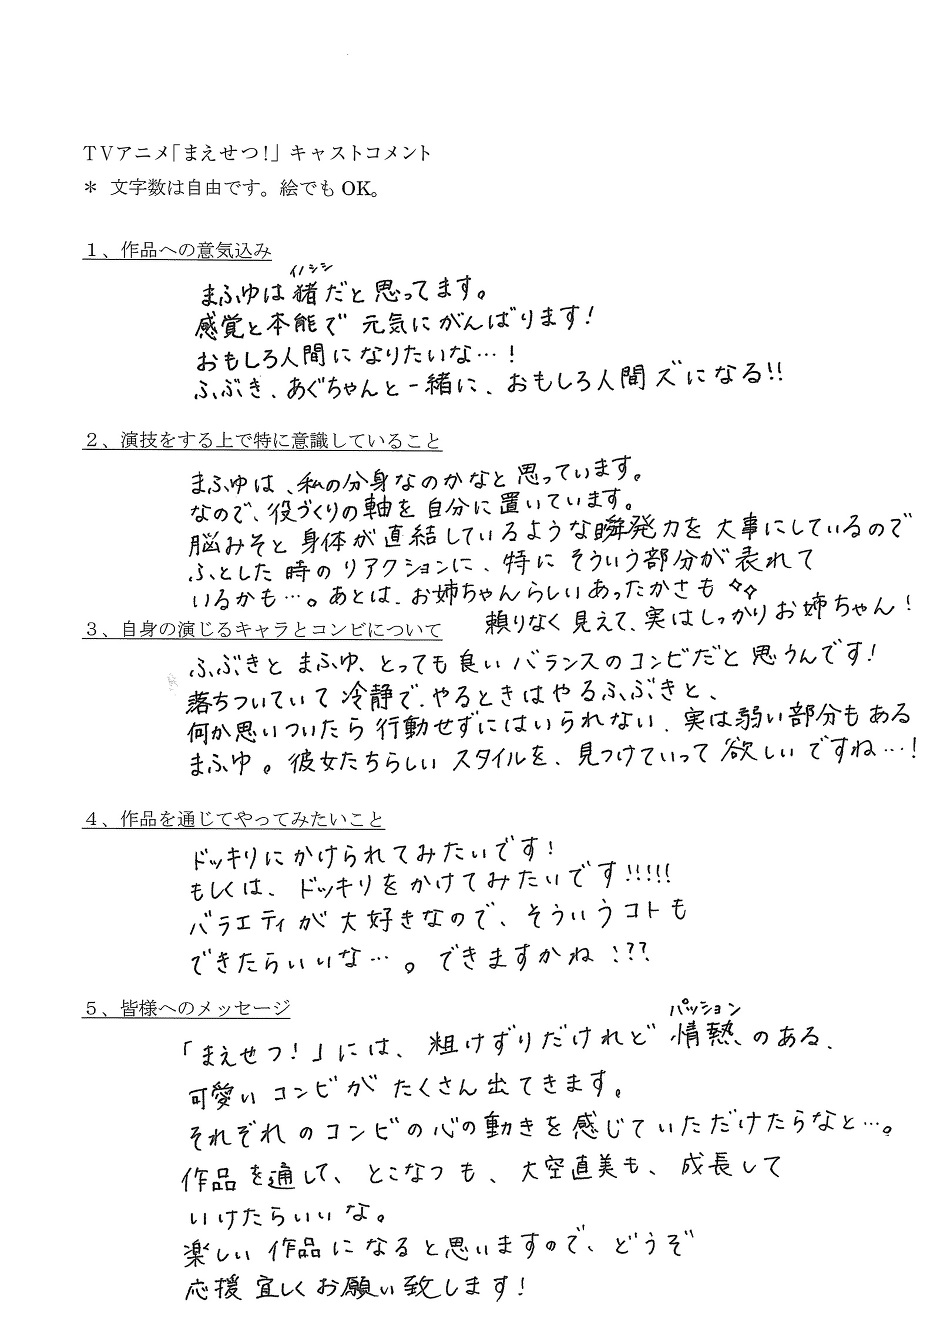 TVアニメ「まえせつ！」キャストコメント
＊ 文字数は自由です。絵でもOK。
１、作品への意気込み
イノシシ
まふゆは猪だと思ってます。
感覚と本能で元気にがんばります！
おもしろ人間になりたいな…！
ふぶき、あぐちゃんと一緒に、おもしろ人間ズになる!!
２、演技をする上で特に意識していること
まふゆは、私の分身なのかなと思っています。
なので、役づくりの軸を自分に置いています。
脳みそと身体が直結しているような瞬発力を大事にしているので
ふとした時のリアクションに、特にそういう部分が表れて
いるかも…。あとは、お姉ちゃんらしいあったかさも✧✧
頼りなく見えて、実はしっかりお姉ちゃん！
３、自身の演じるキャラとコンビについて
ふぶきとまふゆ、とっても良いバランスのコンビだと思うんです！
落ちついていて冷静で、やるときはやるふぶきと、
何か思いついたら行動せずにはいられない、実は弱い部分もある
まふゆ。彼女たちらしいスタイルを、見つけていって欲しいですね…！
４、作品を通じてやってみたいこと
ドッキリにかけられてみたいです！
もしくは、ドッキリをかけてみたいです!!!!!
バラエティが大好きなので、そういうコトも
できたらいいな…。できますかね!??
５、皆様へのメッセージ
パッション
「まえせつ！」には、粗けずりだけれど情熱のある、
可愛いコンビがたくさん出てきます。
それぞれのコンビの心の動きを感じていただけたらなと…。
作品を通して、とこなつも、大空直美も、成長して
いけたらいいな。
楽しい作品になると思いますので、どうぞ
応援宜しくお願い致します！